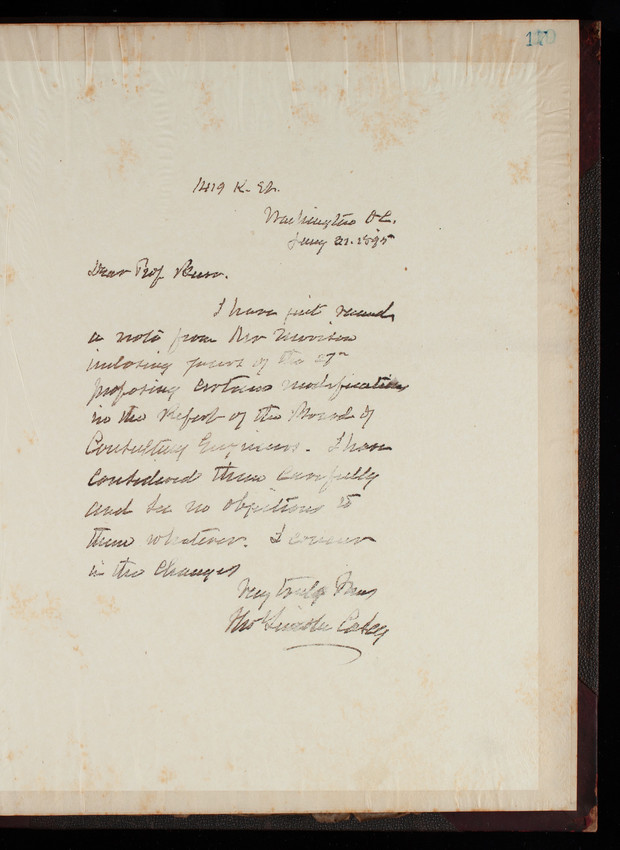 170
1419 K. St.
Washington D.C.
31. 1895
Dear Prof Burr.
I have just received
a note from Mr Morison
inclosing yours of the 27th
proposing certain modifications
in the Report of the Board of
Consulting Engineers. I have
considered them carefully
and see no objections to
them whatever. I concur
in the changes
Very truly Yours
Thos Lincoln Casey